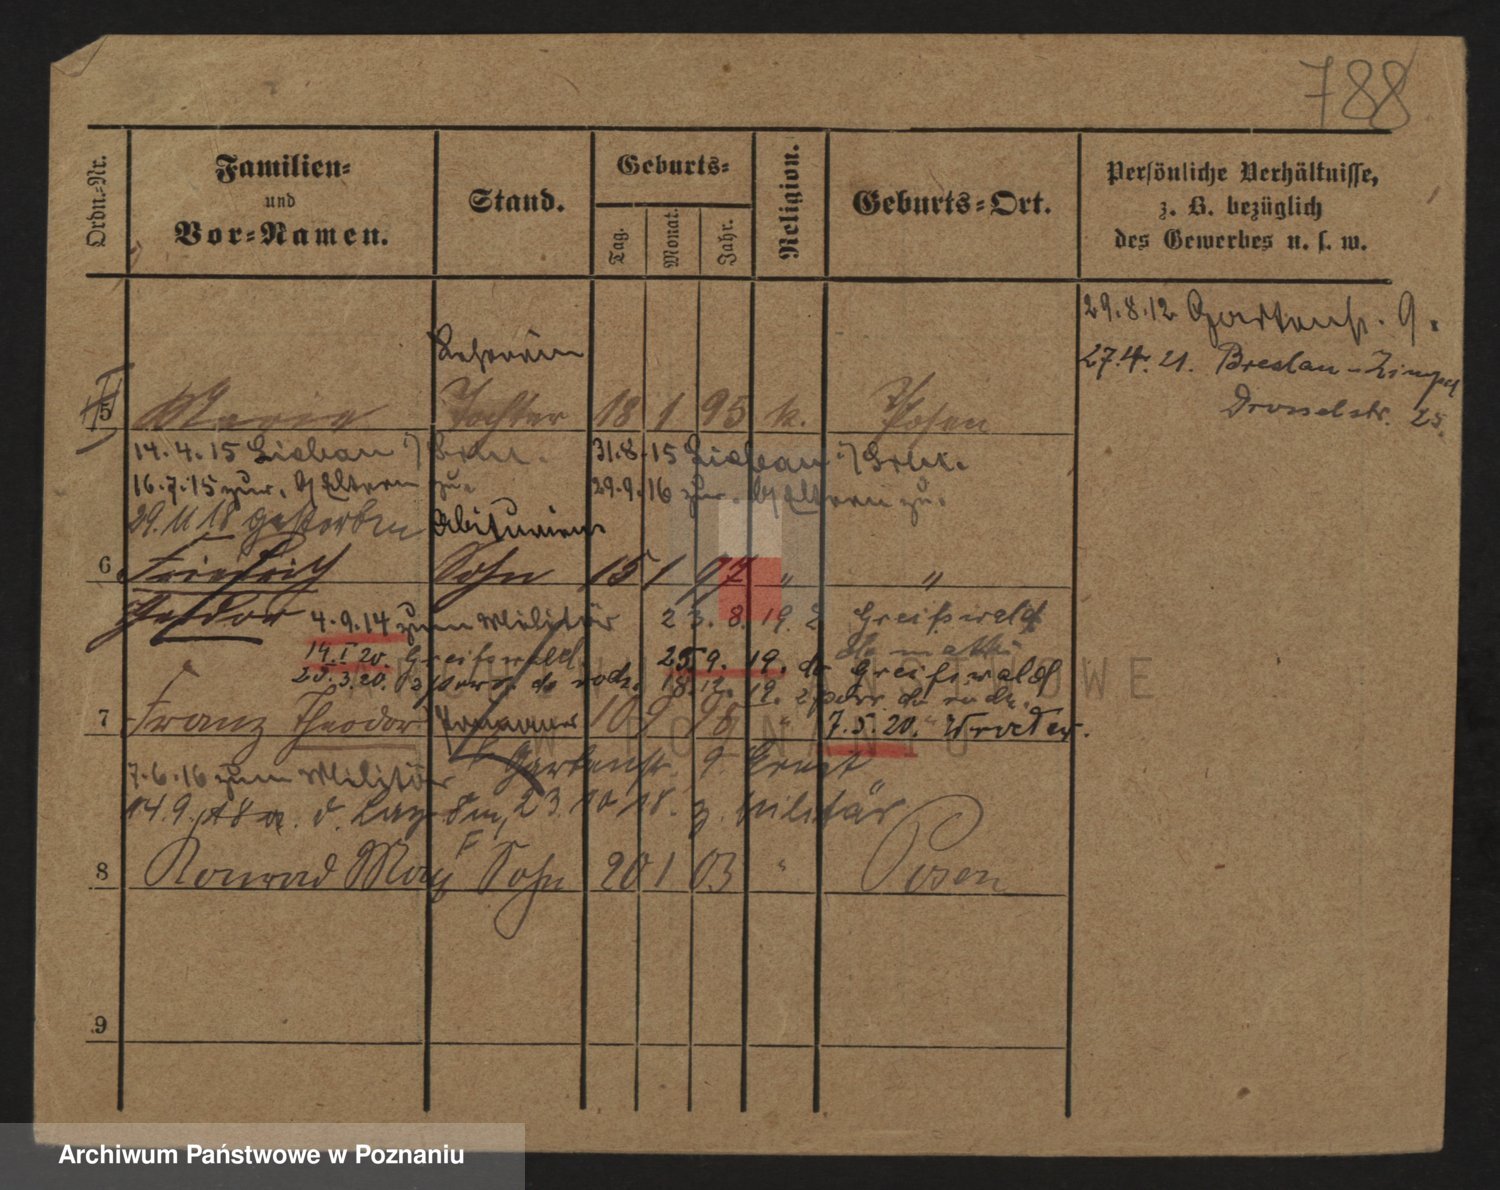 788
Ordn.-Nr.
Familien-
und
Vor-Namen.
Stand.
Geburts-
Tag.
Monat.
Jahr.
Religion.
Geburts-Ort.
Persönliche Verhältnisse,
z. B. bezüglich
des Gewerbes u. s. w.
29.8.12 Gartenstr. 9.
27.4.21. Breslau-Zimpel
Drosselstr. 25.
Lehrerin
5 Marie Tochter 18 1 95 k. Posen
14.4.15 Liebau
31.8.15 Liebau
16.7.15 zur. Eltern zu.
29.9.16 zur. Eltern zu.
29.11.18 gestorben
Abiturient
6 Friedrich Sohn 15 1 97 " "
Theodor
4.9.14 zum Militär
23.8.19. Greifswald
14.I.20. Greifswald.
25.9.19. do Greifswald
25.3.20.
18.12.19.
7 Franz Theodor 10 9 98 " "
7.5.20.
7.6.16 zum Militär
Gartenstr. 9.
14.9. 23.10.18. z. Militär
8 Konrad Max Sohn 20 1 03 " Posen
9
ARCHIWUM PAŃSTWOWE
W POZNANIU
Archiwum Państwowe w Poznaniu